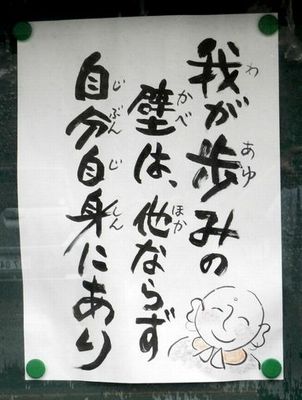 我が歩みの
壁は、他ならず
自分自身にあり
わ
あゆ
かべ
ほか
じぶん
じしん